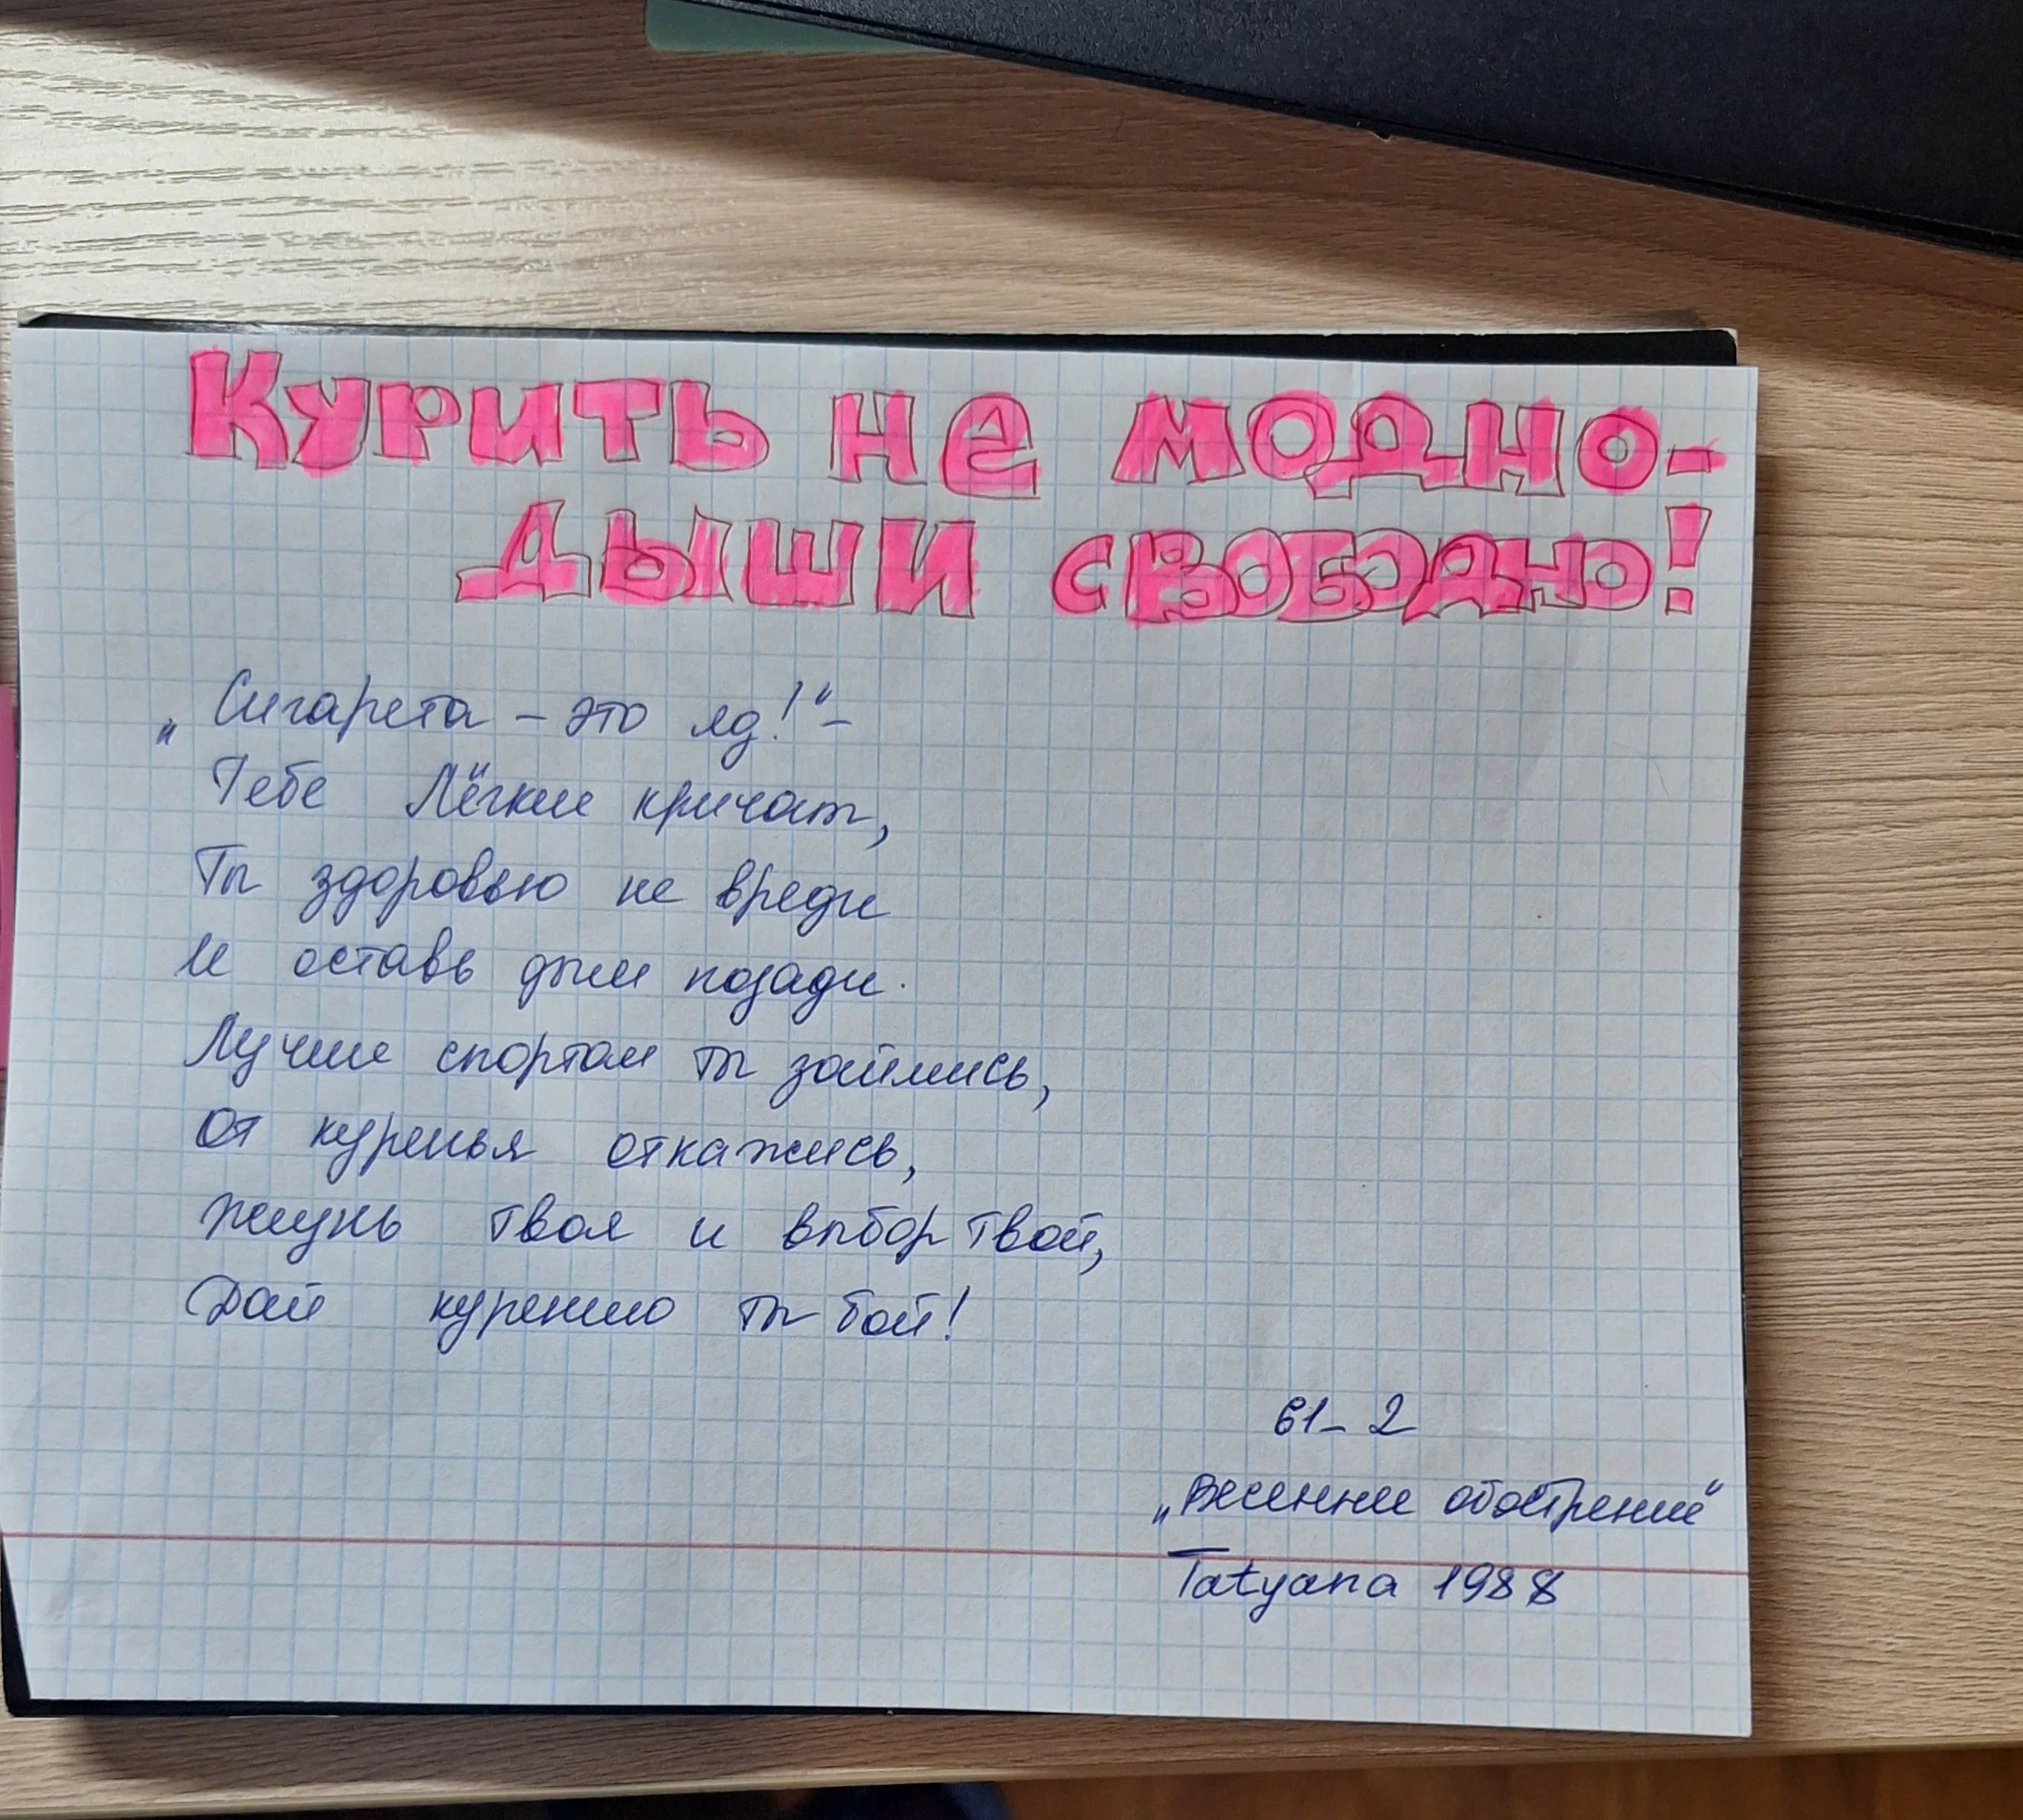 Курить не модно-
дыши свободно!
„Сигарета – это яд!“ –
Тебе Лёгкие кричат,
Ты здоровью не вреди
И оставь дым позади.
Лучше спортом ты займись,
От куренья откажись,
Жизнь твоя и выбор твой,
Дай курению ты бой!
61-2
„Весеннее обострение“
Tatyana 1988